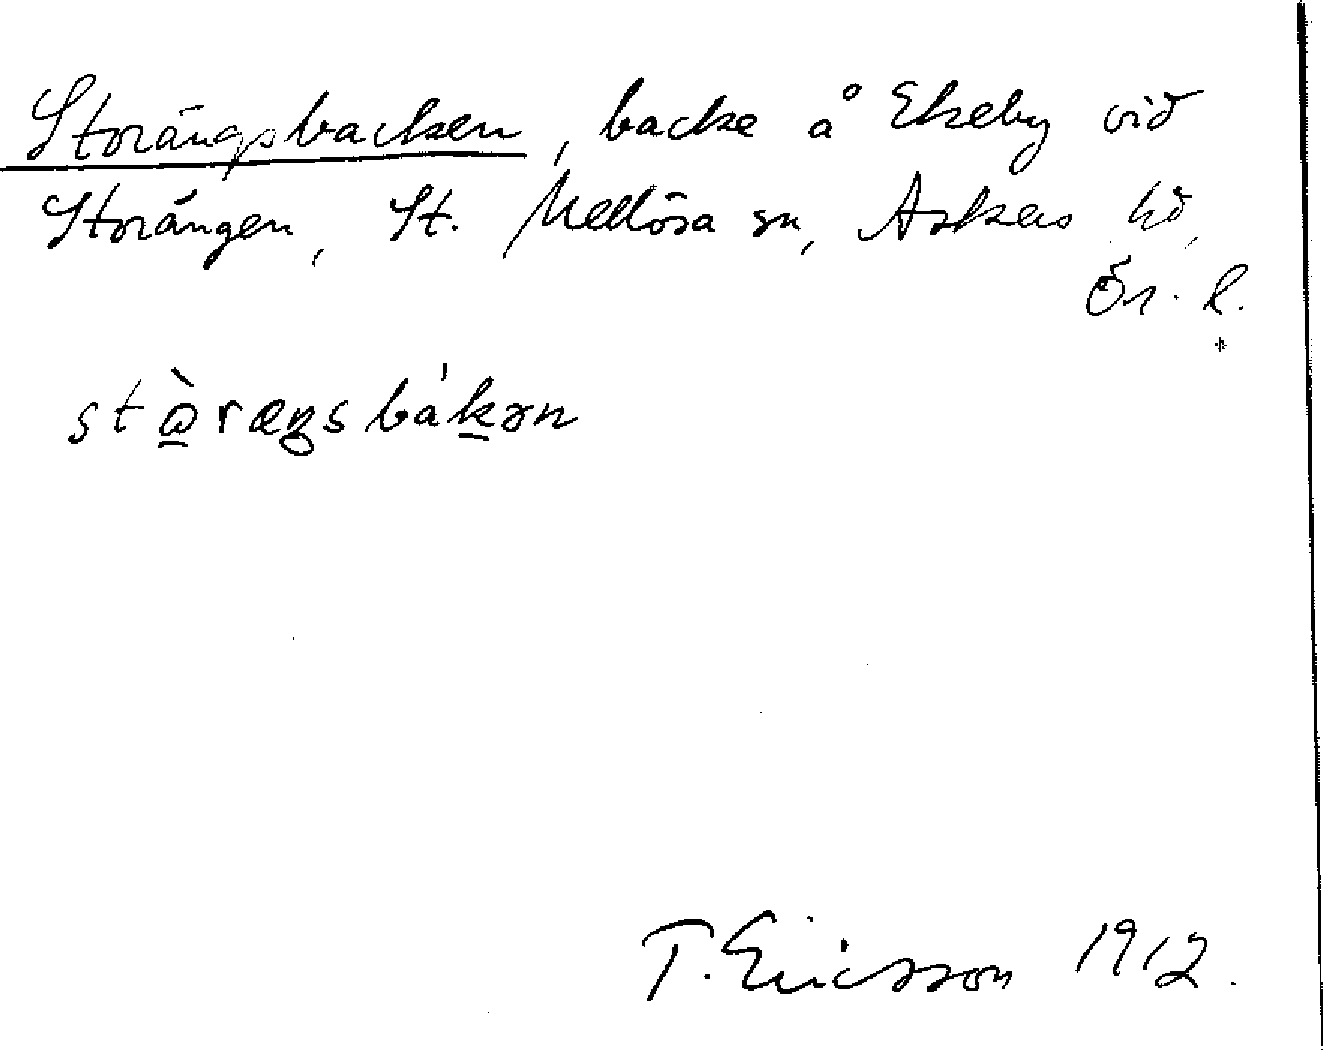 Storängsbacken, backe å Ekeby vid
Storängen, St. Mellösa sn, Askers hd,
Ör. l.
stὼ̲ræŋsbák̲ən
T. Ericsson 1912.